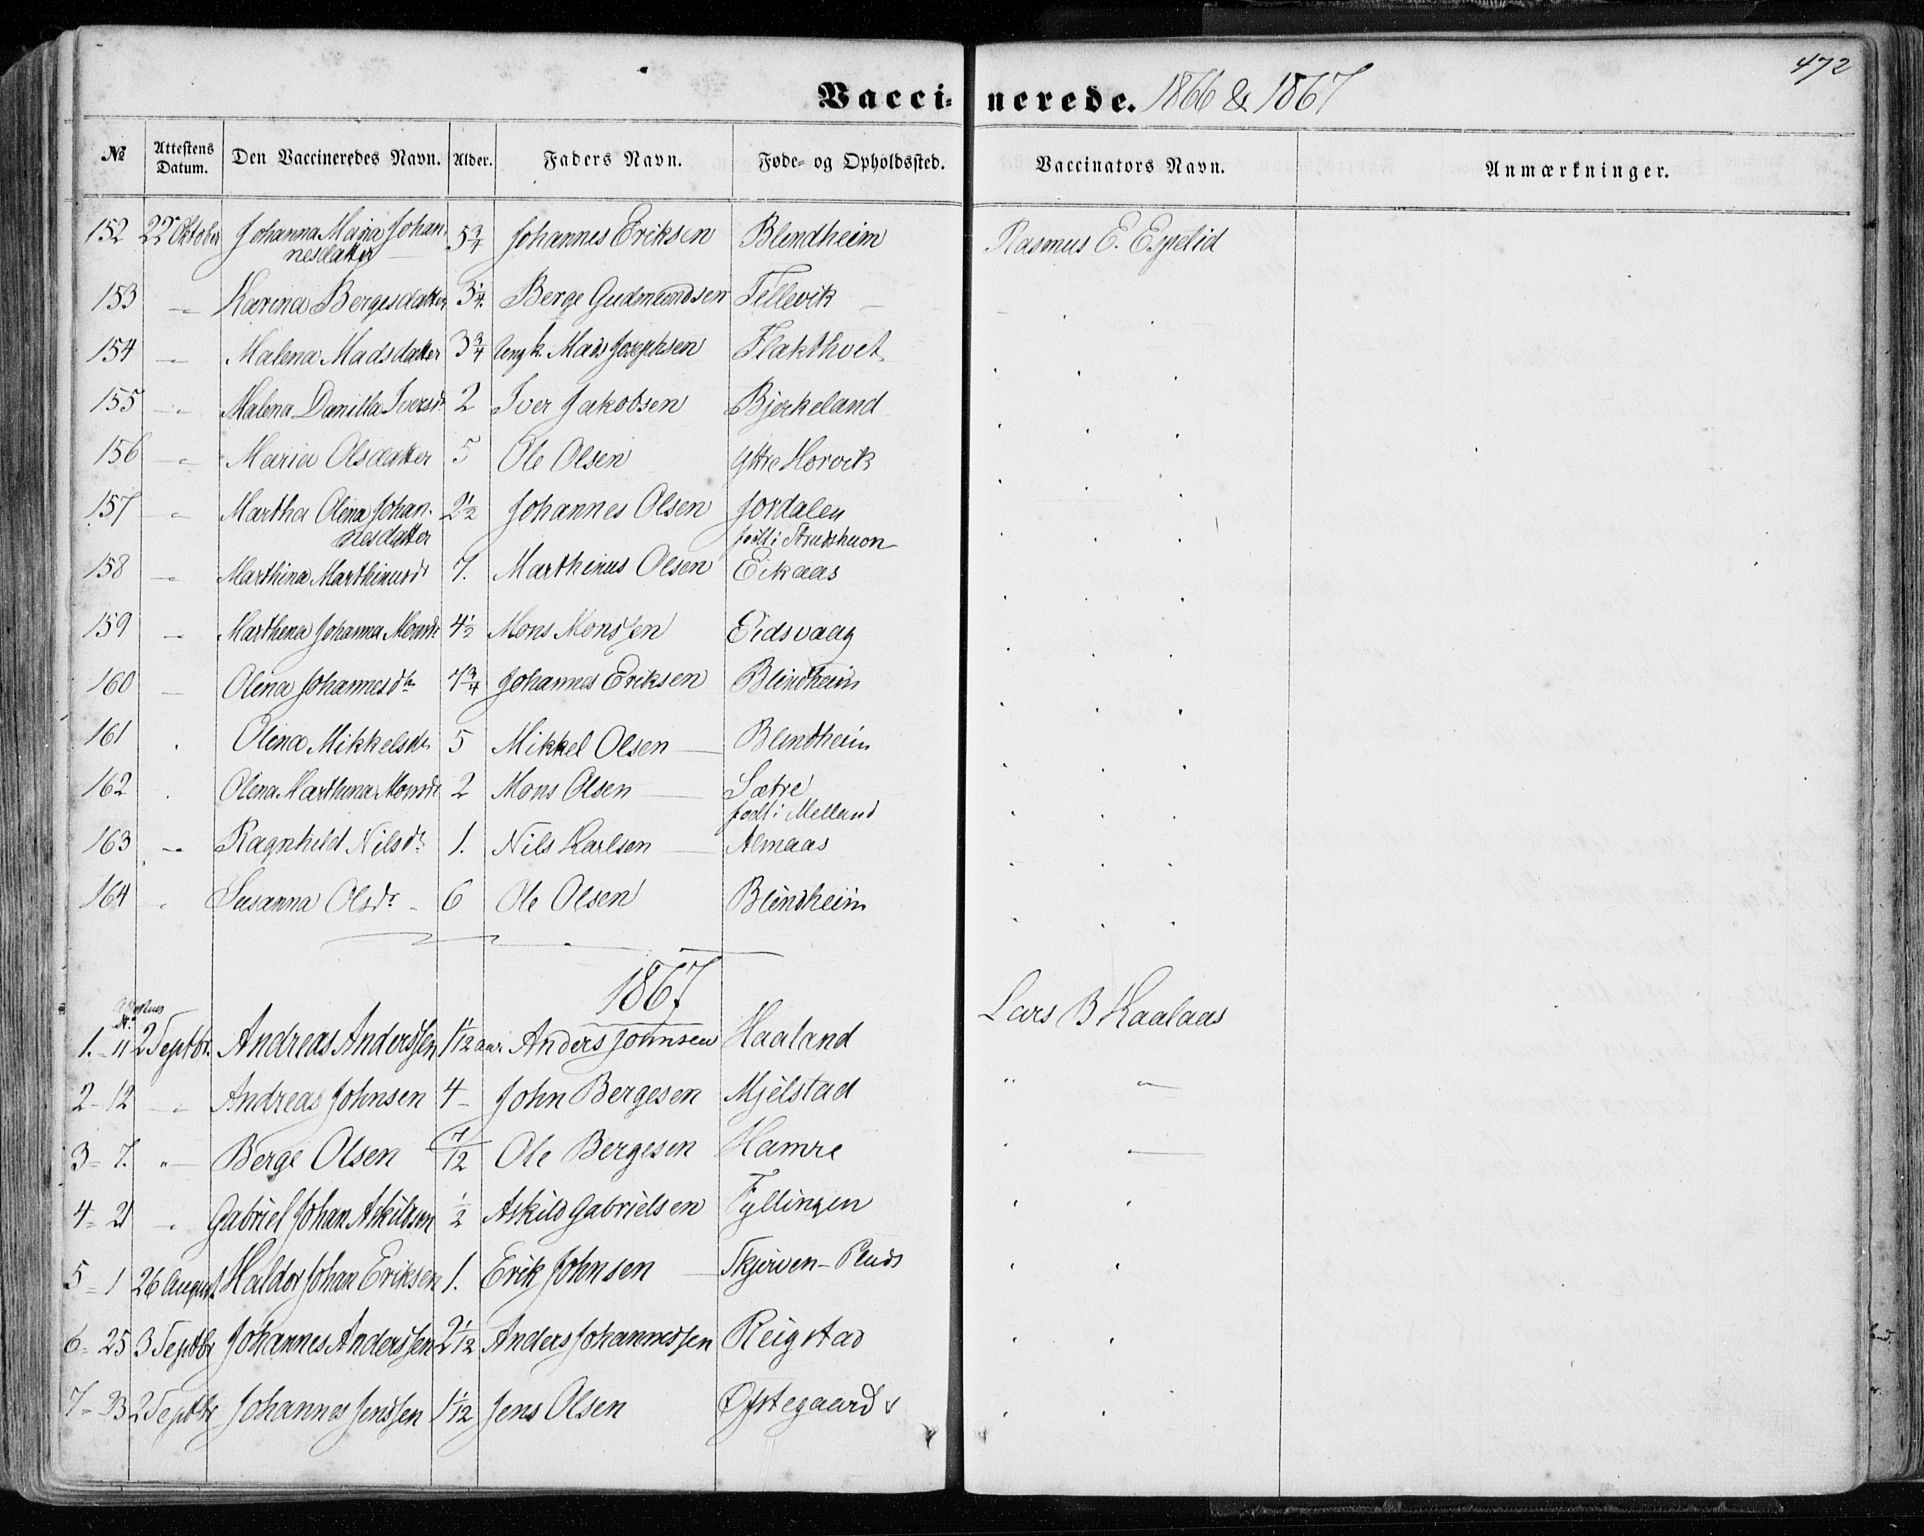 472
Vaccinerede. 1866 & 1867
№ Attestens Datum. Den Vaccineredes Navn. Alder. Faders Navn. Føde- og Opholdssted. Vaccinators Navn. Anmærkninger.
152 22 Oktober Johanna Maria Johan- 5 3/4 Johannes Eriksen Blendheim Rasmus E. Espelid
nesdatter
153 -"- Karina Bergesdatter 3 1/4 Berge Gudmundsen Tellevik
154 -"- Malena Madsdatter 3 3/4 Ungk. Mads Josephsen Flakthvet
155 -"- Malena Danilla Iversdr 2 Iver Jakobsen Bjerkeland
156 -"- Maria Olsdatter 5 Ole Olsen Yttre Horvik
157 -"- Martha Olena Johan- 2 1/2 Johannes Olsen Jordalen
nesdatter født i
158 -"- Marthina Marthinusdr 7. Marthinus Olsen Eikaas
159 -"- Marthena Johanna Monsdr 4 1/2 Mons Monssen Eidsvaag
160 - Olena Johannesdtr 4 3/4 Johannes Eriksen Blindheim
161 " Olina Mikkelsdtr 5 Mikkel Olsen Blindheim
162 " Olena Marthina Monsdr 2 Mons Olsen Sætre
født i Melland
163 -"- Ragnhild Nilsdr 1. Nils Karlsen Almaas
164 " Susanna Olsdr 6 Ole Olsen Blindheim
1867
1. - 11 2 Septbr. Andreas Anderssen 1 1/12 aar Anders Johnsen Haaland Lars B Kaalaas
2 - 12 -"- Andreas Johnsen 4 - John Bergesen Mjelstad " -"-
3 - 7. "- Berge Olsen 7/12 Ole Bergesen Hamre
4 - 21 " Gabriel Johan Askildsen 1/2 Askild Gabrielsen Fyllingen
5 - 1 26 August Haldor Johan Eriksen 1. Erik Johnsen Skjerven -
6 - 25 3 Septbr Johannes Anderssen 2 1/12 Anders Johannessen Reigstad
7 - 33 2 Septbr Johannes Jenssen 1 1/12 Jens Olsen Øfstegaards